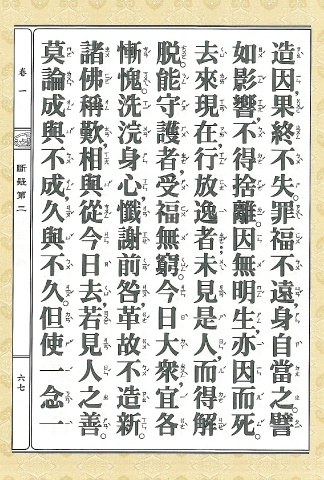 造因果終不失。罪福不遠，身自當之。譬
如影響，不得捨離。因無明生，亦因而死。
去來現在，行放逸者…未見是人，而得解
脫。能守護者，受福無窮。今日大眾，宜各
慚愧。洗浣身心，懺謝前咎。革故不造新，
諸佛稱歎。相與從今日去，若見人之善。
莫論成與不成，久與不久。但使一念一
卷一
斷疑第二
六七